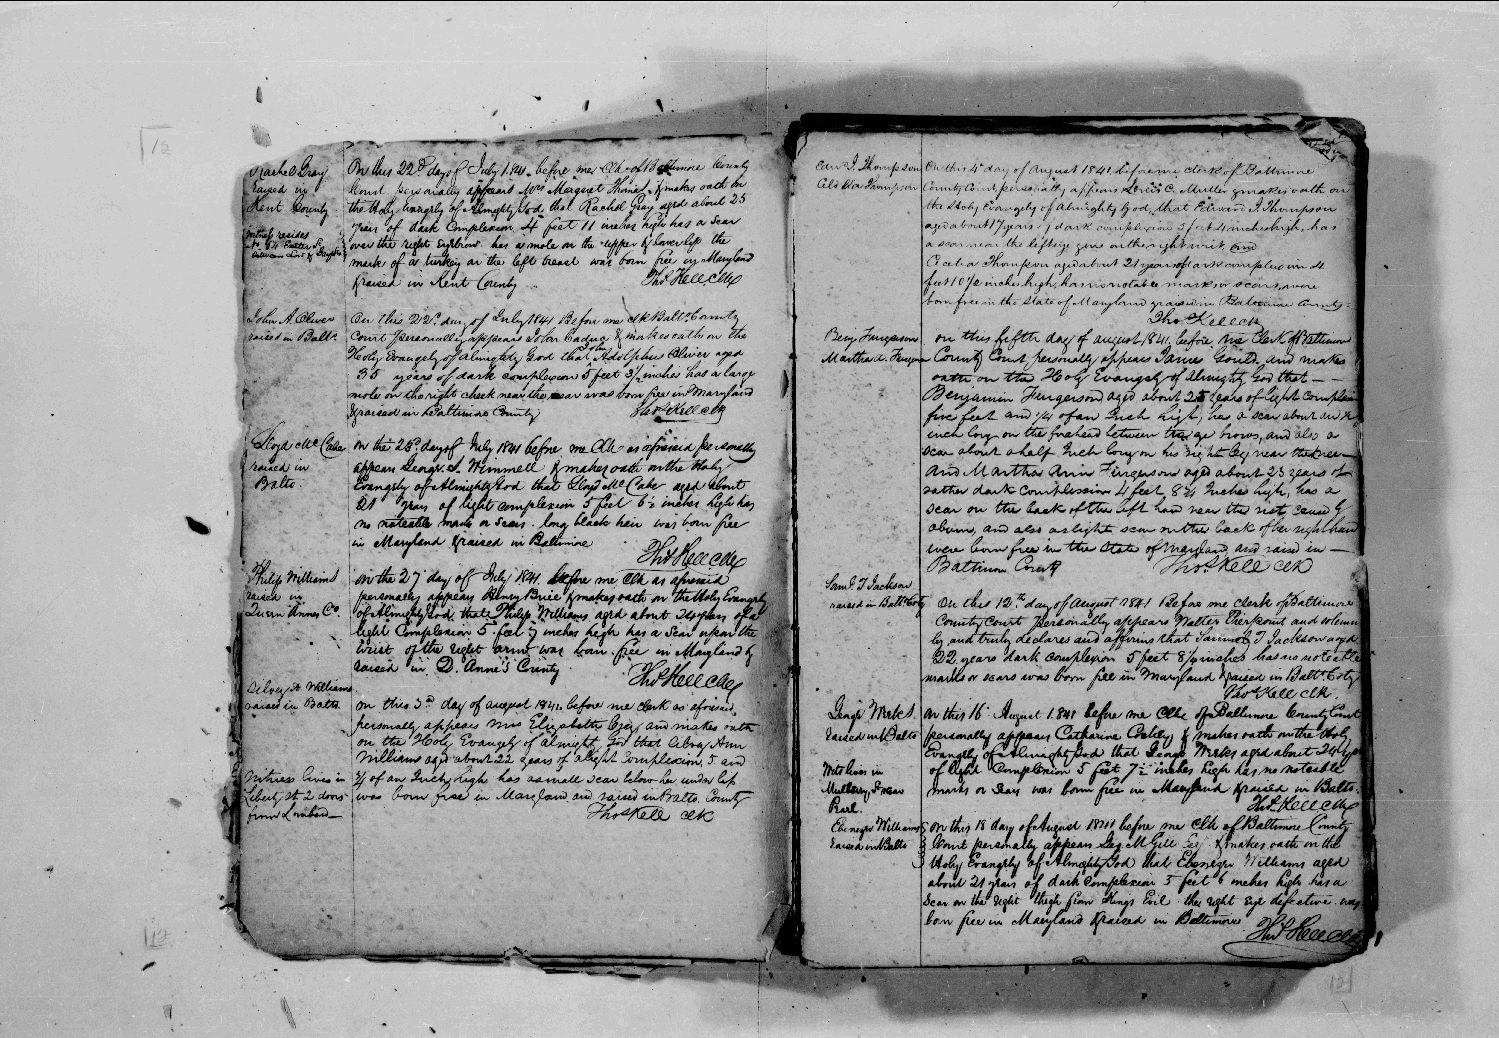 Rachel Gray
raised in
Kent County
witness resides
No 84 Easter St
between
On this 22d day of July 1841 before me Clk of Baltimore County
Court personally appears Mrs Margaret Thomas & makes oath on
the Holy Evangely of Almighty God that Rachel Gray aged about 25
years of dark Complexion 4 feet 11 inches high has a Scar
over the right Eyebrow has a mole on the upper & lower lip the
mark of a turkey on the left breast was born free in Maryland
& raised in Kent County
Thos Kell Clk
John A. Oliver
raised in Balto.
On this 22d day of July 1841 Before me clk Balto County
Court personally appears John & makes oath on the
Holy Evangely of almighty God that John Adolphus Oliver aged
35 years of dark complexion 5 feet 3½ inches has a large
mole on the right cheek near the ear was born free in Maryland
& raised in Baltimore County
Thos Kell clk
Lloyd Mc Cabe
raised in
Balto
on the day of July 1841 before me Clk as aforesaid personally
appears George S. Wimmell & makes oath on the Holy
Evangely of Almighty God that Lloyd Mc Cabe aged about
21 years of light complexion 5 feet 6½ inches high has
no noteable marks or Scars long black hair was born free
in Maryland & raised in Baltimore
Thos Kell Clk
Philip Williams
raised in
Queen Annes Co.
on the 27 day of July 1841 before me Clk as aforesaid
personally appears Henry Brice & makes oath on the Holy Evangely
of Almighty God that Philip Williams aged about 24 years of a
light Complexion 5 feet 7 inches high has a Scar upon the
wrist of the right arm was born free in Maryland &
raised in Q. Anne's County
Thos Kell Clk
Williams
raised in Balto.
on this 3d day of august 1841 before me clerk as aforesaid
personally appears Mrs Elizabeth and makes oath
on the Holy Evangely of almighty God that Ann
Williams aged about 22 years of a light Complexion, 5 and
¾ of an Inch high has a small scar below her under lip
was born free in Maryland and raised in Balto. County
Thos Kell clk
Witness lives in
Liberty St 2 doors
from Lombard
Edw J. Thompson
Celia Thompson
On this 4th day of August 1841 before me clerk of Baltimore
County Court personally appears Lewis C. Muller & makes oath on
the Holy Evangely of Almighty God, that Edwin J. Thompson
aged about 17 years of dark complexion 5 feet 4 inches high, has
a scar near the left eye one on the right wrist and
Celia Thompson aged about 21 years of dark complexion 4
feet 10½ inches high, has no notable marks or scars, were
born free in the State of Maryland & raised in Baltimore County
Thos Kell clk
Benj Furgerson
Martha A. Furgerson
on this fifth day of august 1841, before me Clerk of Baltimore
County Court personally appears James Gould and makes
oath on the Holy Evangely of almighty God that
Benjamin Furgerson aged about 25 years of light complexion
five feet and ¼ of an Inch high, has a scar about an
inch long on the forehead between the eye brows, and also a
scar about a half Inch long on his right near the
And Martha Ann Furgerson aged about 23 years of
rather dark complexion 4 feet, 8¾ Inches high, has a
scar on the back of the left hand near the wrist caused by
a burn, and also a slight scar on the back of her right hand
were born free in the State of Maryland and raised in
Baltimore County
Thos Kell clk
Saml T Jackson
raised in Balto Coty
On this 12th day of August 1841 Before me clerk of Baltimore
County Court personally appears Walter Pierpont and solemn
ly and truly declares and affirms that Samuel T Jackson aged
22 years dark complexion 5 feet 8½ inches has no noteable
marks or scars was born free in Maryland & raised in Balto. Coty
Thos Kell clk.
George Weeks
raised in Balto
Wits lives in
Mulberry St near
Pearl.
on this 16 August 1841 before me Clk of Baltimore County Court
personally appears Catharine & makes oath on the Holy
Evangely of Almighty God that George Weeks aged about
of light Complexion 5 feet 7½ inches high has no noteable
marks or Scars was born free in Maryland & raised in Balto.
Thos Kell Clk
Ebenezer Williams
raised in Balto
on this 18 day of August 1841 before me Clk of Baltimore County
Court personally appears Geo McGill Esq & makes oath on the
Holy Evangely of Almighty God that Ebenezer Williams aged
about 21 years of dark complexion 5 feet 6 inches high has a
Scar on the right thigh from Kings Evil the right Eye defective was
born free in Maryland & raised in Baltimore
Thos Kell Clk